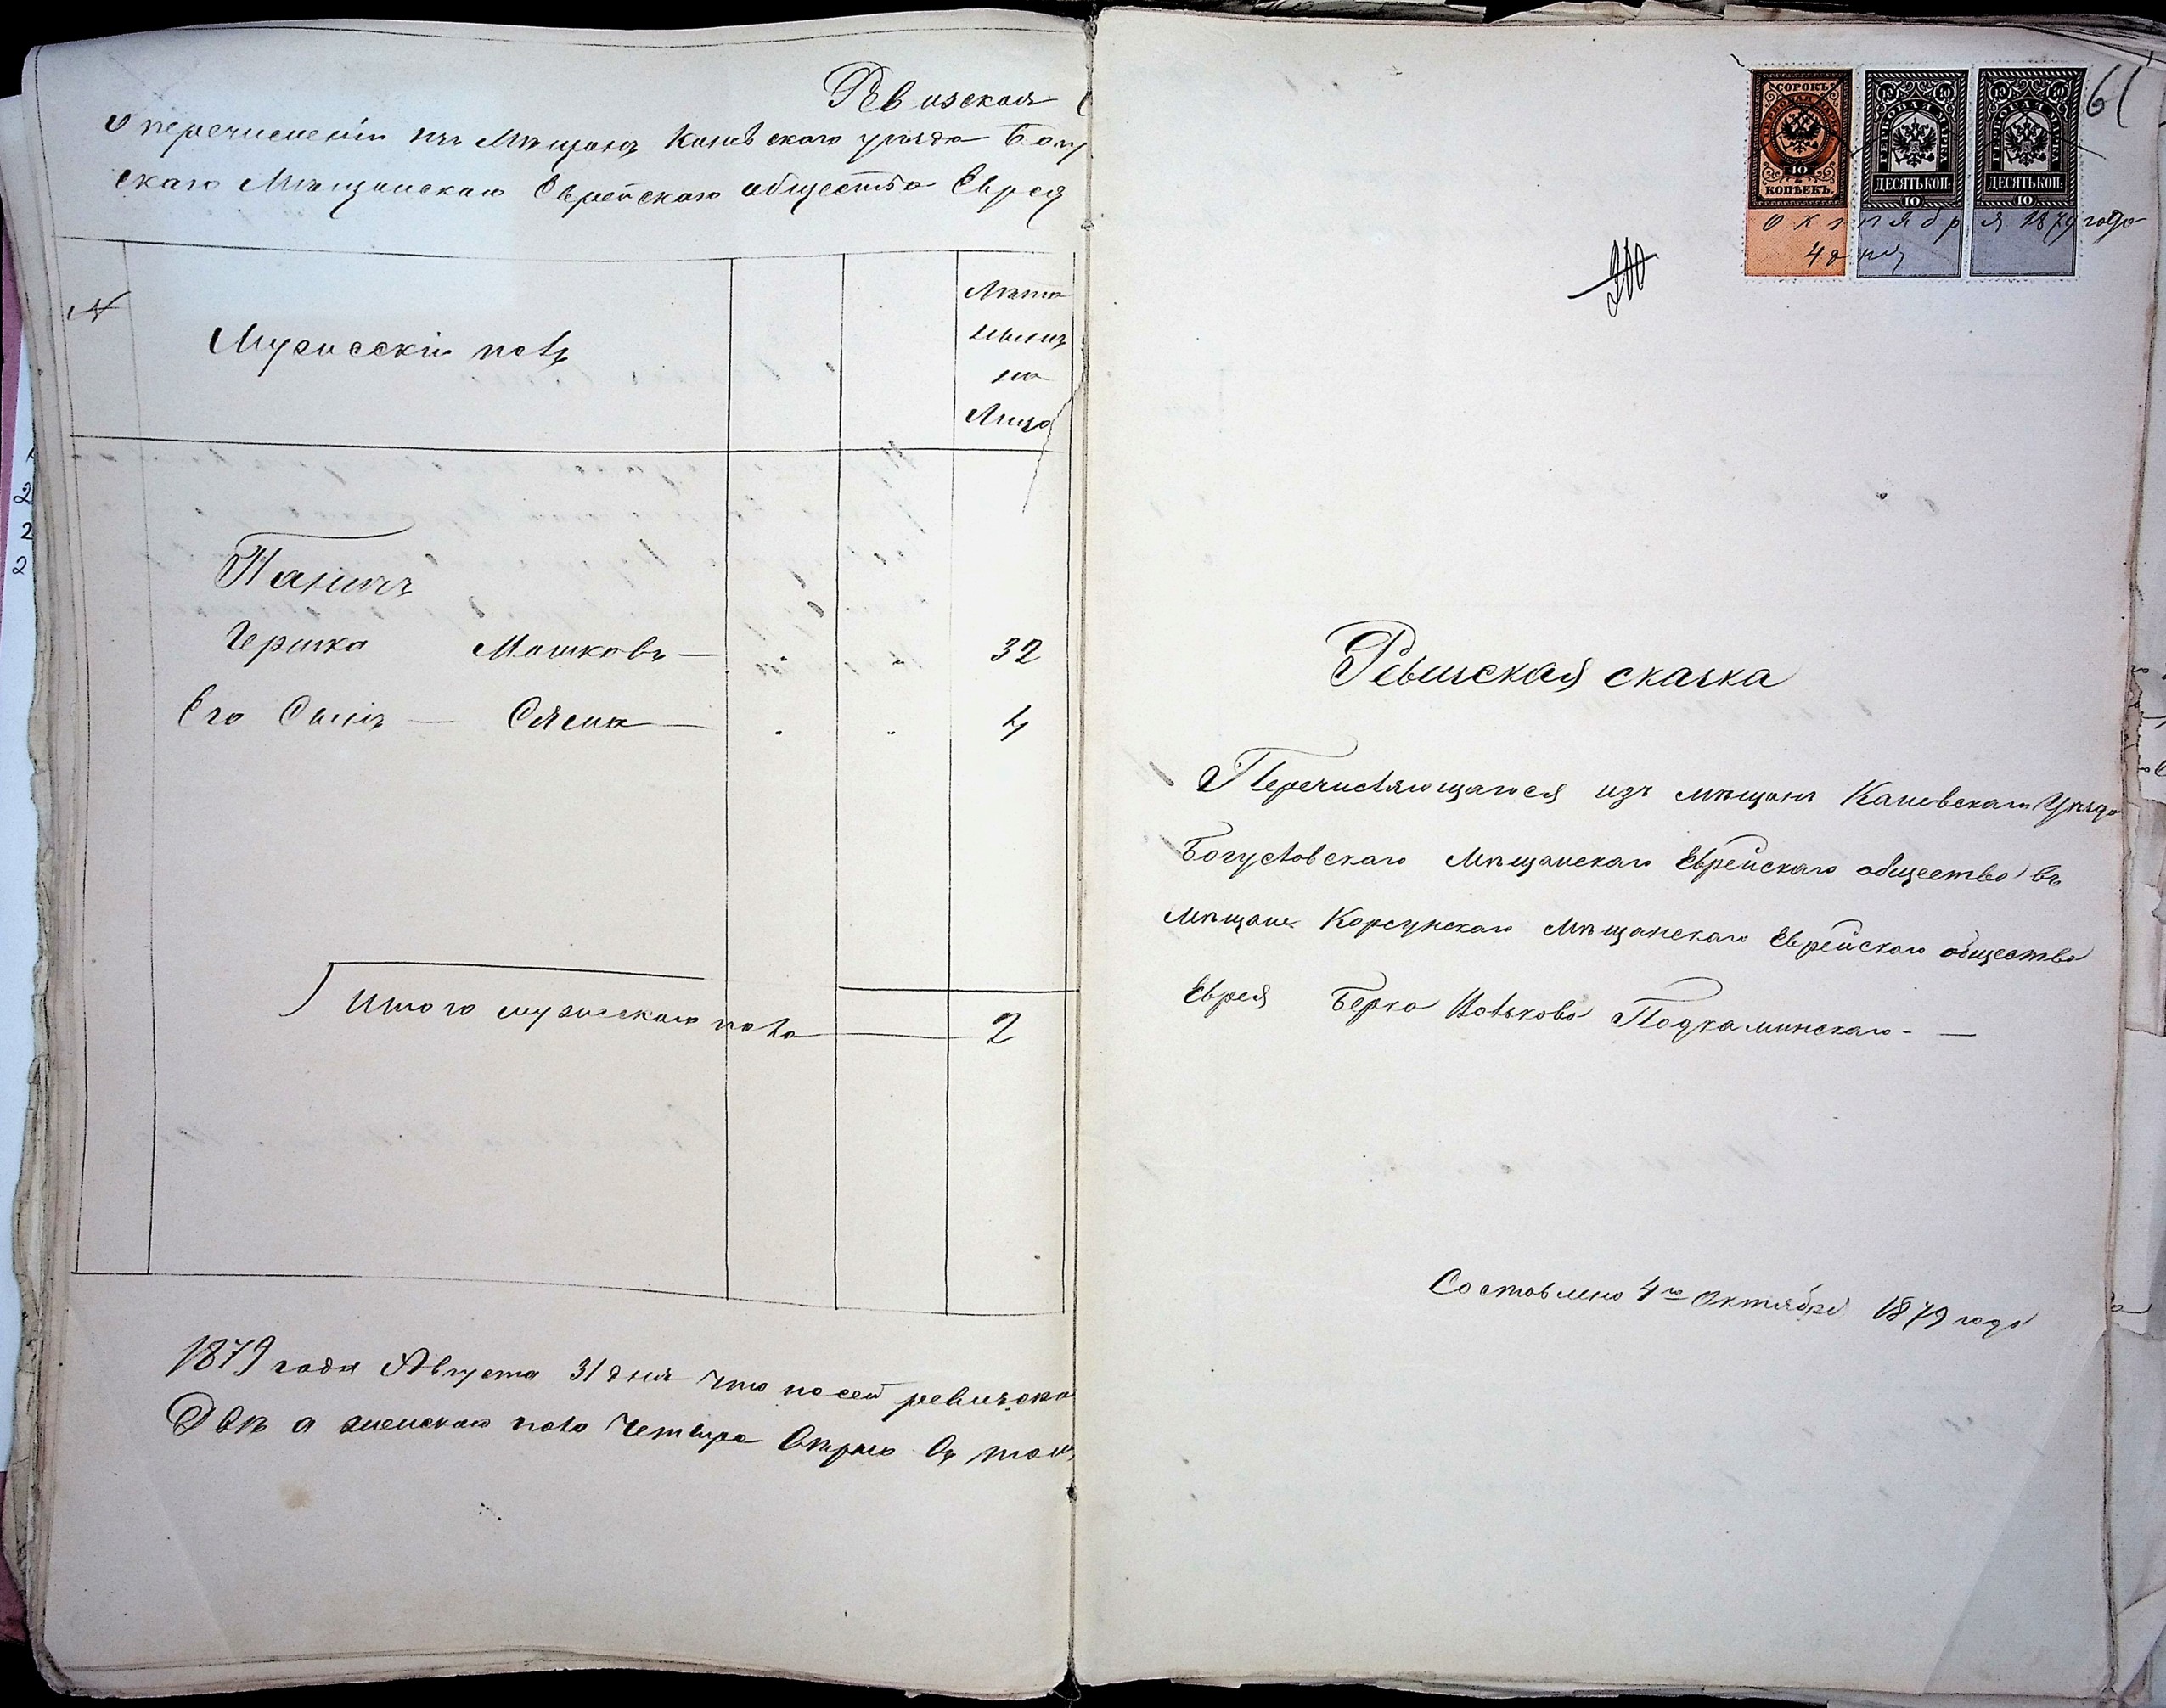 Ревизская
О перечислении изъ Мѣщанъ Каневскаго уѣзда Богу
скаго Мѣщанскаго Еврейскаго общества Еврея
№
Мужескій полъ
Лѣта
нынѣ
на
Лицо
Гершко Мошковъ — 32
Его Сынъ — 4
Итого мужескаго пола 2
1879 года Августа 31 дня что по сей ревизско
Двѣ а женскаго пола четыре
61
СОРОКЪ
40
КОПѢЕКЪ
10 10
ГЕРБОВАЯ МАРКА
ДЕСЯТЬ КОП:
10
10 10
ГЕРБОВАЯ МАРКА
ДЕСЯТЬ КОП:
10
Октября 1879 года
4 дня
Ревизская сказка
Перечисляющагося изъ мѣщанъ Каневскаго Уѣзда
Богуславскаго Мѣщанскаго Еврейскаго общества въ
мѣщане Корсунскаго Мѣщанскаго Еврейскаго общества
Еврея Берка Подкаминскаго —
Составлено 4го Октября 1879 года